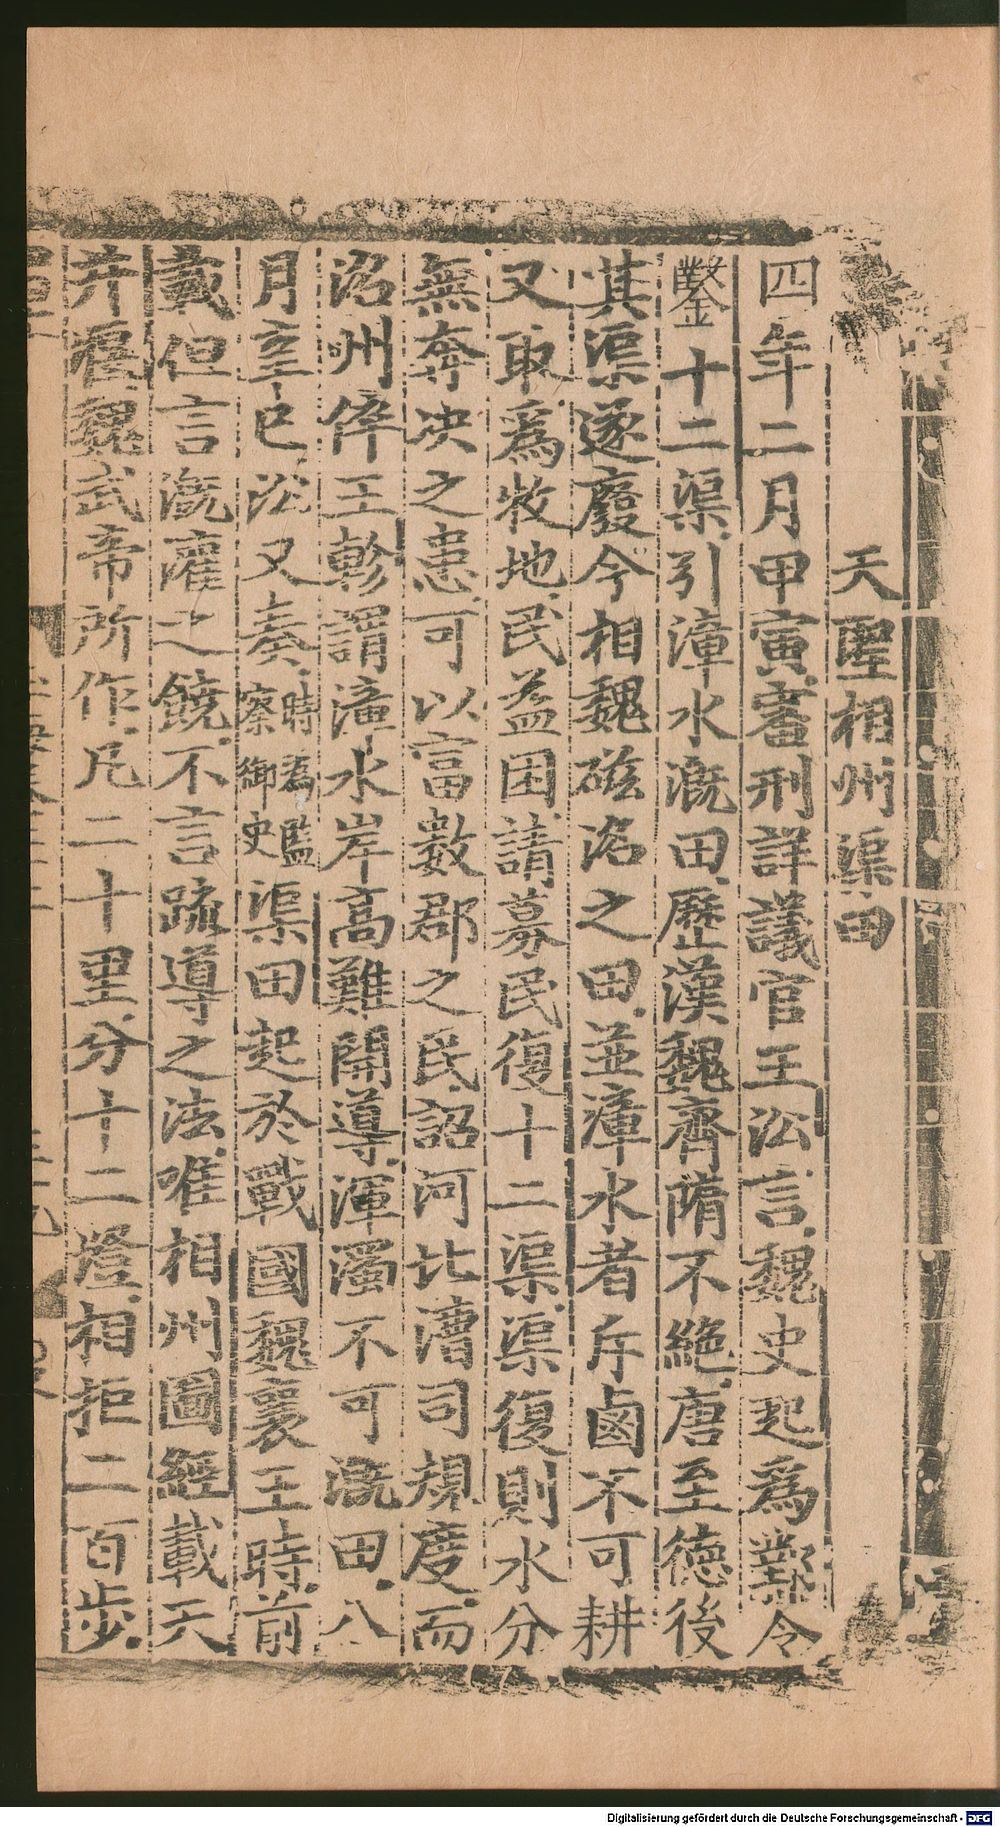 天聖相州渠田
四年二月甲寅審刑詳議官王㳂言魏史起爲鄴令
鑿十二渠引漳水溉田歷漢魏齊隋不絶唐至徳後
其渠遂廢今相魏磁洺之田並漳水者斥鹵不可耕
又取爲牧地民益困請募民復十二渠渠復則水分
無奔决之患可以富數郡之民詔河北漕司規度而
洺州倅王軫謂漳水岸高難開導渾濁不可溉田八
月辛巳㳂又奏時爲監察御史渠田起於戰國魏襄王時前
載但言溉灌之饒不言疏導之法唯相州圖經載天
井堰魏武帝所作凡二十里分十二墱相拒二百步
Digitalisierung gefördert durch die Deutsche Forschungsgemeinschaft - DFG